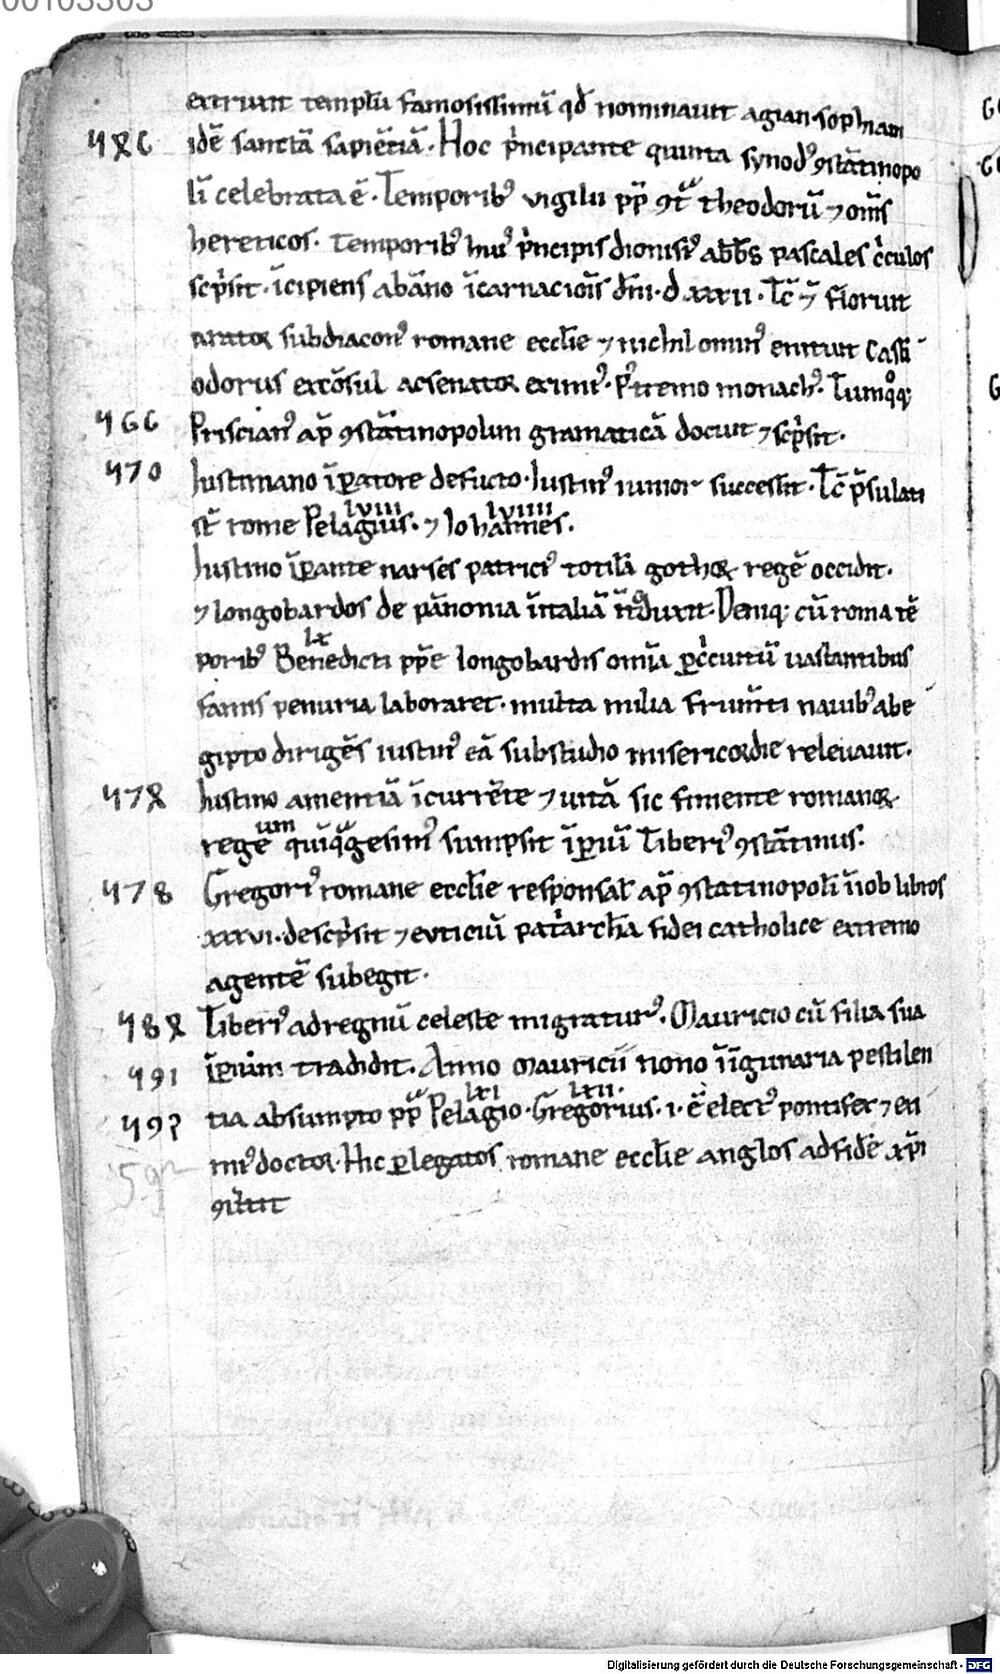 00103303
extruxit templū famosissimū qđ nominauit agian sophiam
idē sanctā sapiētiā. Hoc p̍ncipante quinta synodꝰ ꝯstātinopo
li celebrata ē. Temporibꝰ vigilii pp̄ ꝯt̄ theodorū ⁊ om̄s
hereticos. Temporibꝰ huiꝰ p̍ncipis dionisiꝰ abb̄s pascales c̍culos
sc̍psit. īcipiens ab āno īcarnaciōis dn̄i. d xxxii. Tc̄ ⁊ floruit
arator subdiaconꝰ romane eccl̄ie ⁊ nichilominꝰ enituit Cassi
odorus excōsul ac senator eximiꝰ. Pꝰtremo monachꝰ. Tumqͦqꝫ
Priscianꝰ ap̄ ꝯstātinopolim gramaticā docuit ⁊ sc̍psit.
Iustiniano īꝑatore defūcto. Iustinꝰ iunior successit. Tc̄ p̄sulati
st̄ rome Pelagius. ⁊ Iohannes.
lviii lviiii
Iustino īꝑante narses patriciꝰ totilā gothoꝝ regē occidit.
⁊ longobardos de pānonia ī italiā ītͦduxit. Deniqꝫ cū roma tē
poribꝰ Benedicti pp̄e longobardis omīa ꝑ c̍cuitū uastantibus
lx
famis penuria laboraret. multa milia frum̄ti nauibꝰ ab e
gipto dirigēs iustinꝰ eā sub studio misericordie releuauit.
Iustino amentiā īcurrēte ⁊ uitā sic finiente romanoꝝ
regē quīqͣgesimꝰ sumpsit īꝑiū Tiberiꝰ ꝯstātinus.
um
Gregoriꝰ romane eccl̄ie responsal̄ ap̄ ꝯstātinopoli ī iob libros
xxxvi. desc̍psit ⁊ euticiū pat̍archā fidei catholice extremo
agentē subegit.
Tiberiꝰ ad regnū celeste migraturꝰ. Mauricio cū filia sua
īꝑium tradidit. Anno mauricii nono īguinaria pestilen
tia absumpto pp̄ Pelagio. Gregorius. i. ē electꝰ pontifex ⁊ exi
lxi lxii.
miꝰ doctor. Hic ꝑ legatos romane eccl̄ie anglos ad fidē xp̄i
ꝯūtit
466
470
478
491
Digitalisierung gefördert durch die Deutsche Forschungsgemeinschaft - DFG